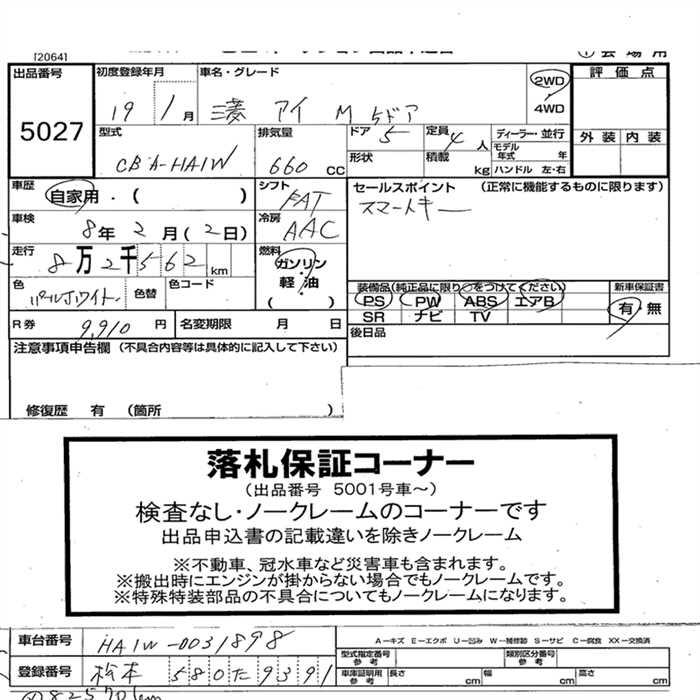 [2064]
出品番号 初度登録年月 車名・グレード 2WD 評価点
5027 19 1月 三菱 アイ M 5ドア 4WD
型式 排気量 ドア 5 定員 4人 ディーラー・並行 外装 内装
CBA-HA1W 660 cc 形状 積載 kg モデル年式 年 ハンドル 左・右
車歴 自家用・( ) シフト FAT セールスポイント (正常に機能するものに限ります)
車検 8年2月(2日) 冷房 AAC スマートキー
走行 8万2千562km 燃料 ガソリン・軽油 ( )
色 パールホワイト 色替 色コード 装備品(純正品に限り○をつけてください) 新車保証書
PS PW ABS エアB 有・無
R券 9,910円 名変期限 月 日 SR ナビ TV
後日品
注意事項申告欄 (不具合内容等は具体的に記入して下さい)
修復歴 有 (箇所 )
落札保証コーナー
(出品番号 5001号車～)
検査なし・ノークレームのコーナーです
出品申込書の記載違いを除きノークレーム
※不動車、冠水車など災害車も含まれます。
※搬出時にエンジンが掛からない場合でもノークレームです。
※特殊特装部品の不具合についてもノークレームになります。
車台番号 HA1W-0031898 A－キズ E－エクボ U－凹み W－補修跡 S－サビ C－腐食 XX－交換済
型式指定番号 参考 類別区分番号 参考
登録番号 松本 580た9391 車庫証明用 参考 長さ cm 幅 cm 高さ cm